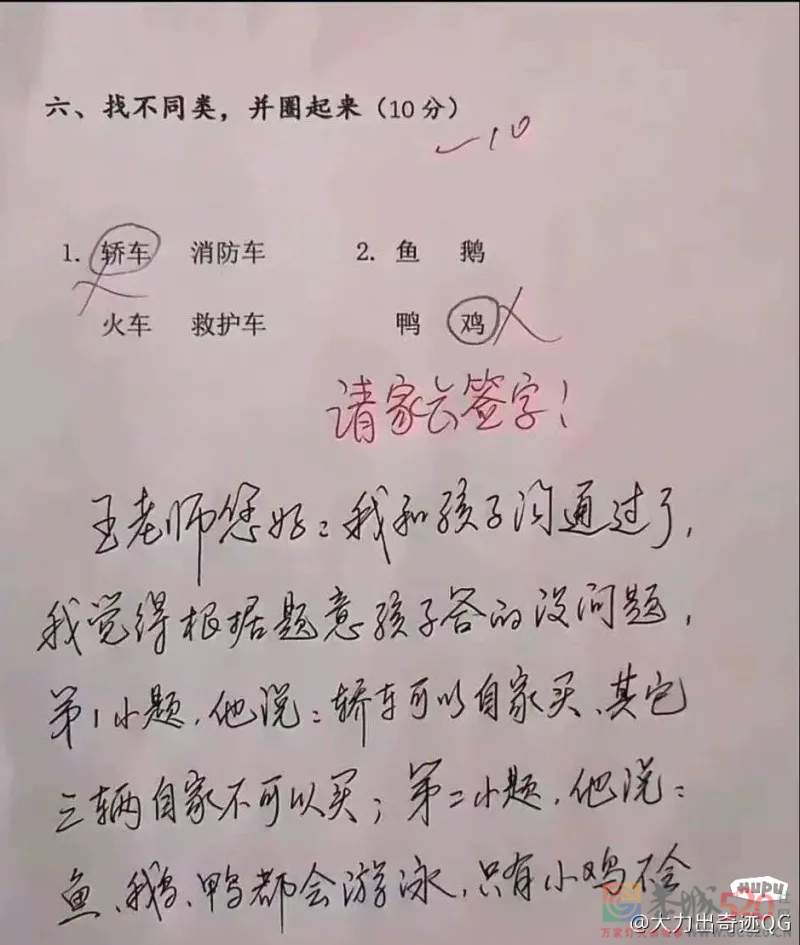 六、找不同类，并圈起来（10分）
-10
1. 轿车 消防车 2. 鱼 鹅
火车 救护车 鸭 鸡
请家长签字！
王老师您好：我和孩子沟通过了，
我觉得根据题意孩子答的没问题，
第1小题，他说：轿车可以自家买、其它
三辆自家不可以买；第二小题，他说：
鱼、鹅、鸭都会游泳，只有小鸡不会
HUPU
@大力出奇迹QG